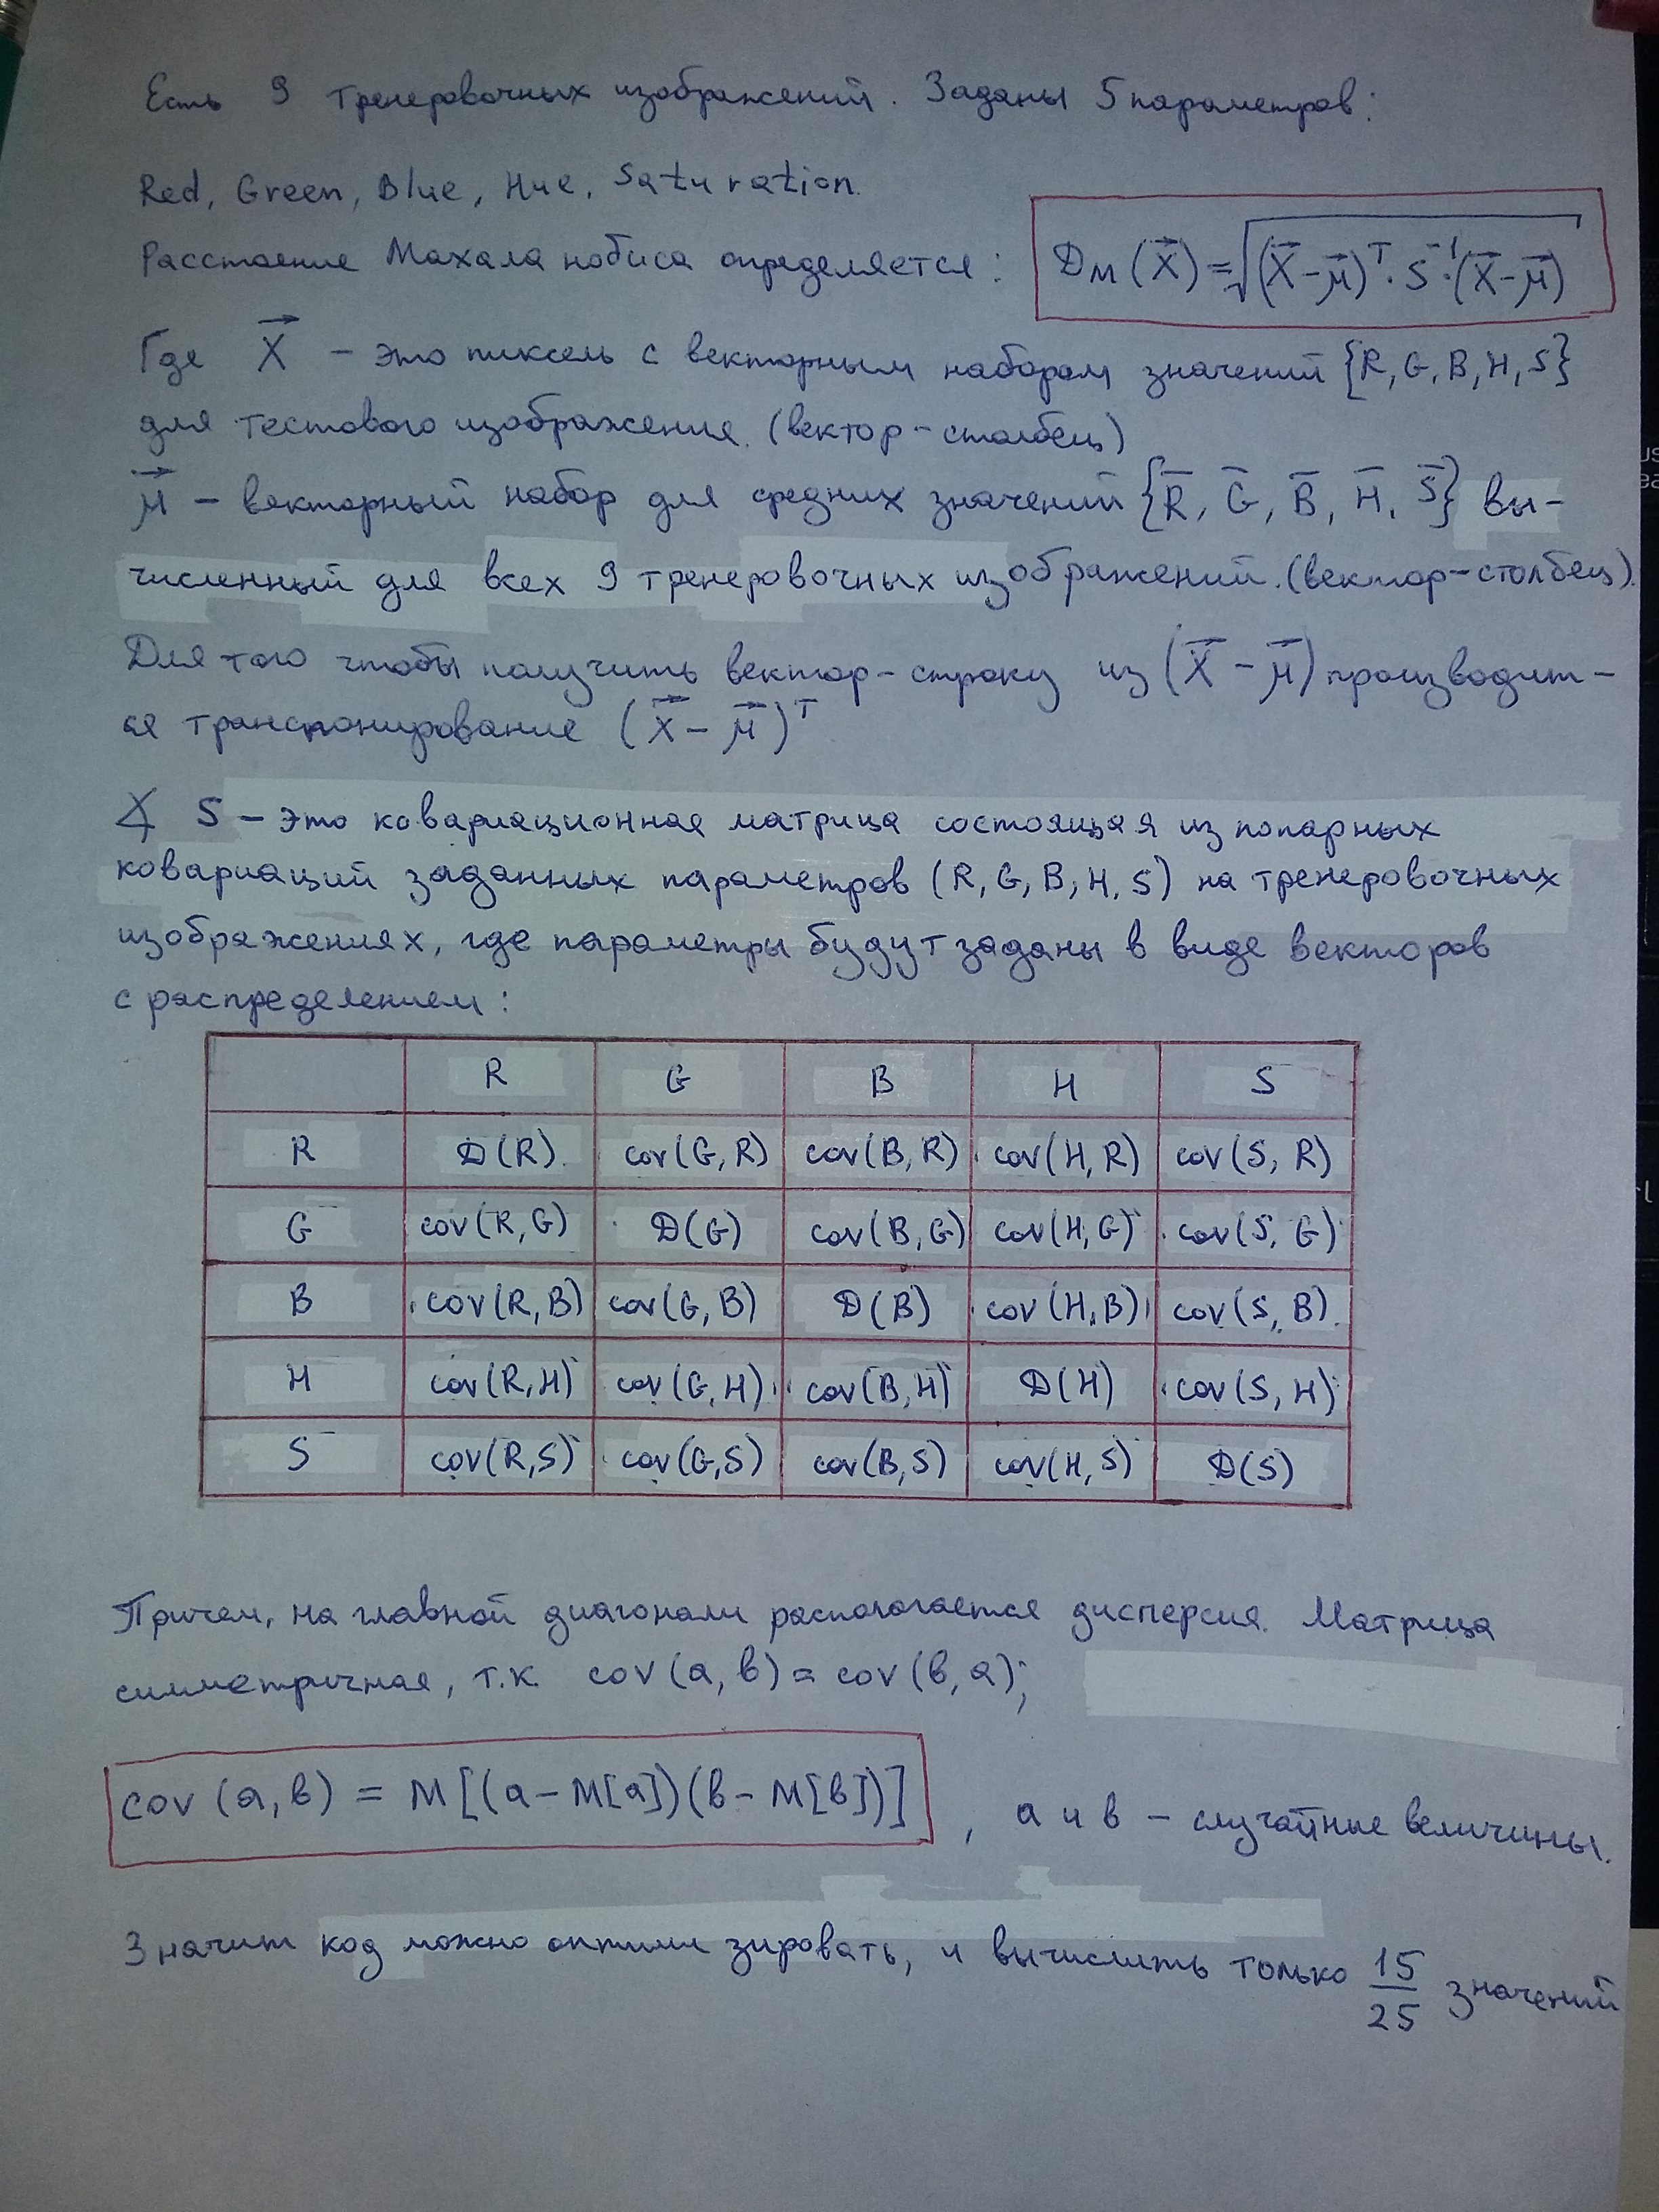 Есть 9 тренеровочных изображений. Заданы 5 параметров:
Red, Green, Blue, Hue, Saturation.
Расстояние Махаланобиса определяется: Dм(X⃗) = √(X⃗-μ⃗)ᵀ·S⁻¹·(X⃗-μ⃗)
Где X⃗ – это пиксель с векторным набором значений {R, G, B, H, S}
для тестового изображения. (вектор-столбец)
μ⃗ – векторный набор для средних значений {R̅, G̅, B̅, H̅, S̅} вы-
численный для всех 9 тренеровочных изображений. (вектор-столбец).
Для того чтобы получить вектор-строку из (X⃗-μ⃗) производит-
ся транспонирование (X⃗-μ⃗)ᵀ
∡ S – это ковариационная матрица состоящая из попарных
ковариаций заданных параметров (R, G, B, H, S) на тренеровочных
изображениях, где параметры будут заданы в виде векторов
с распределением:
R G B H S
R D(R) cov(G, R) cov(B, R) cov(H, R) cov(S, R)
G cov(R, G) D(G) cov(B, G) cov(H, G) cov(S, G)
B cov(R, B) cov(G, B) D(B) cov(H, B) cov(S, B)
H cov(R, H) cov(G, H) cov(B, H) D(H) cov(S, H)
S cov(R, S) cov(G, S) cov(B, S) cov(H, S) D(S)
Причем, на главной диагонали располагается дисперсия. Матрица
симметричная, т.к. cov(a, в) = cov(в, a);
cov(a, в) = M[(a-M[a])(в-M[в])] , a и в – случайные величины.
Значит код можно оптимизировать, и вычислить только 15/25 значений